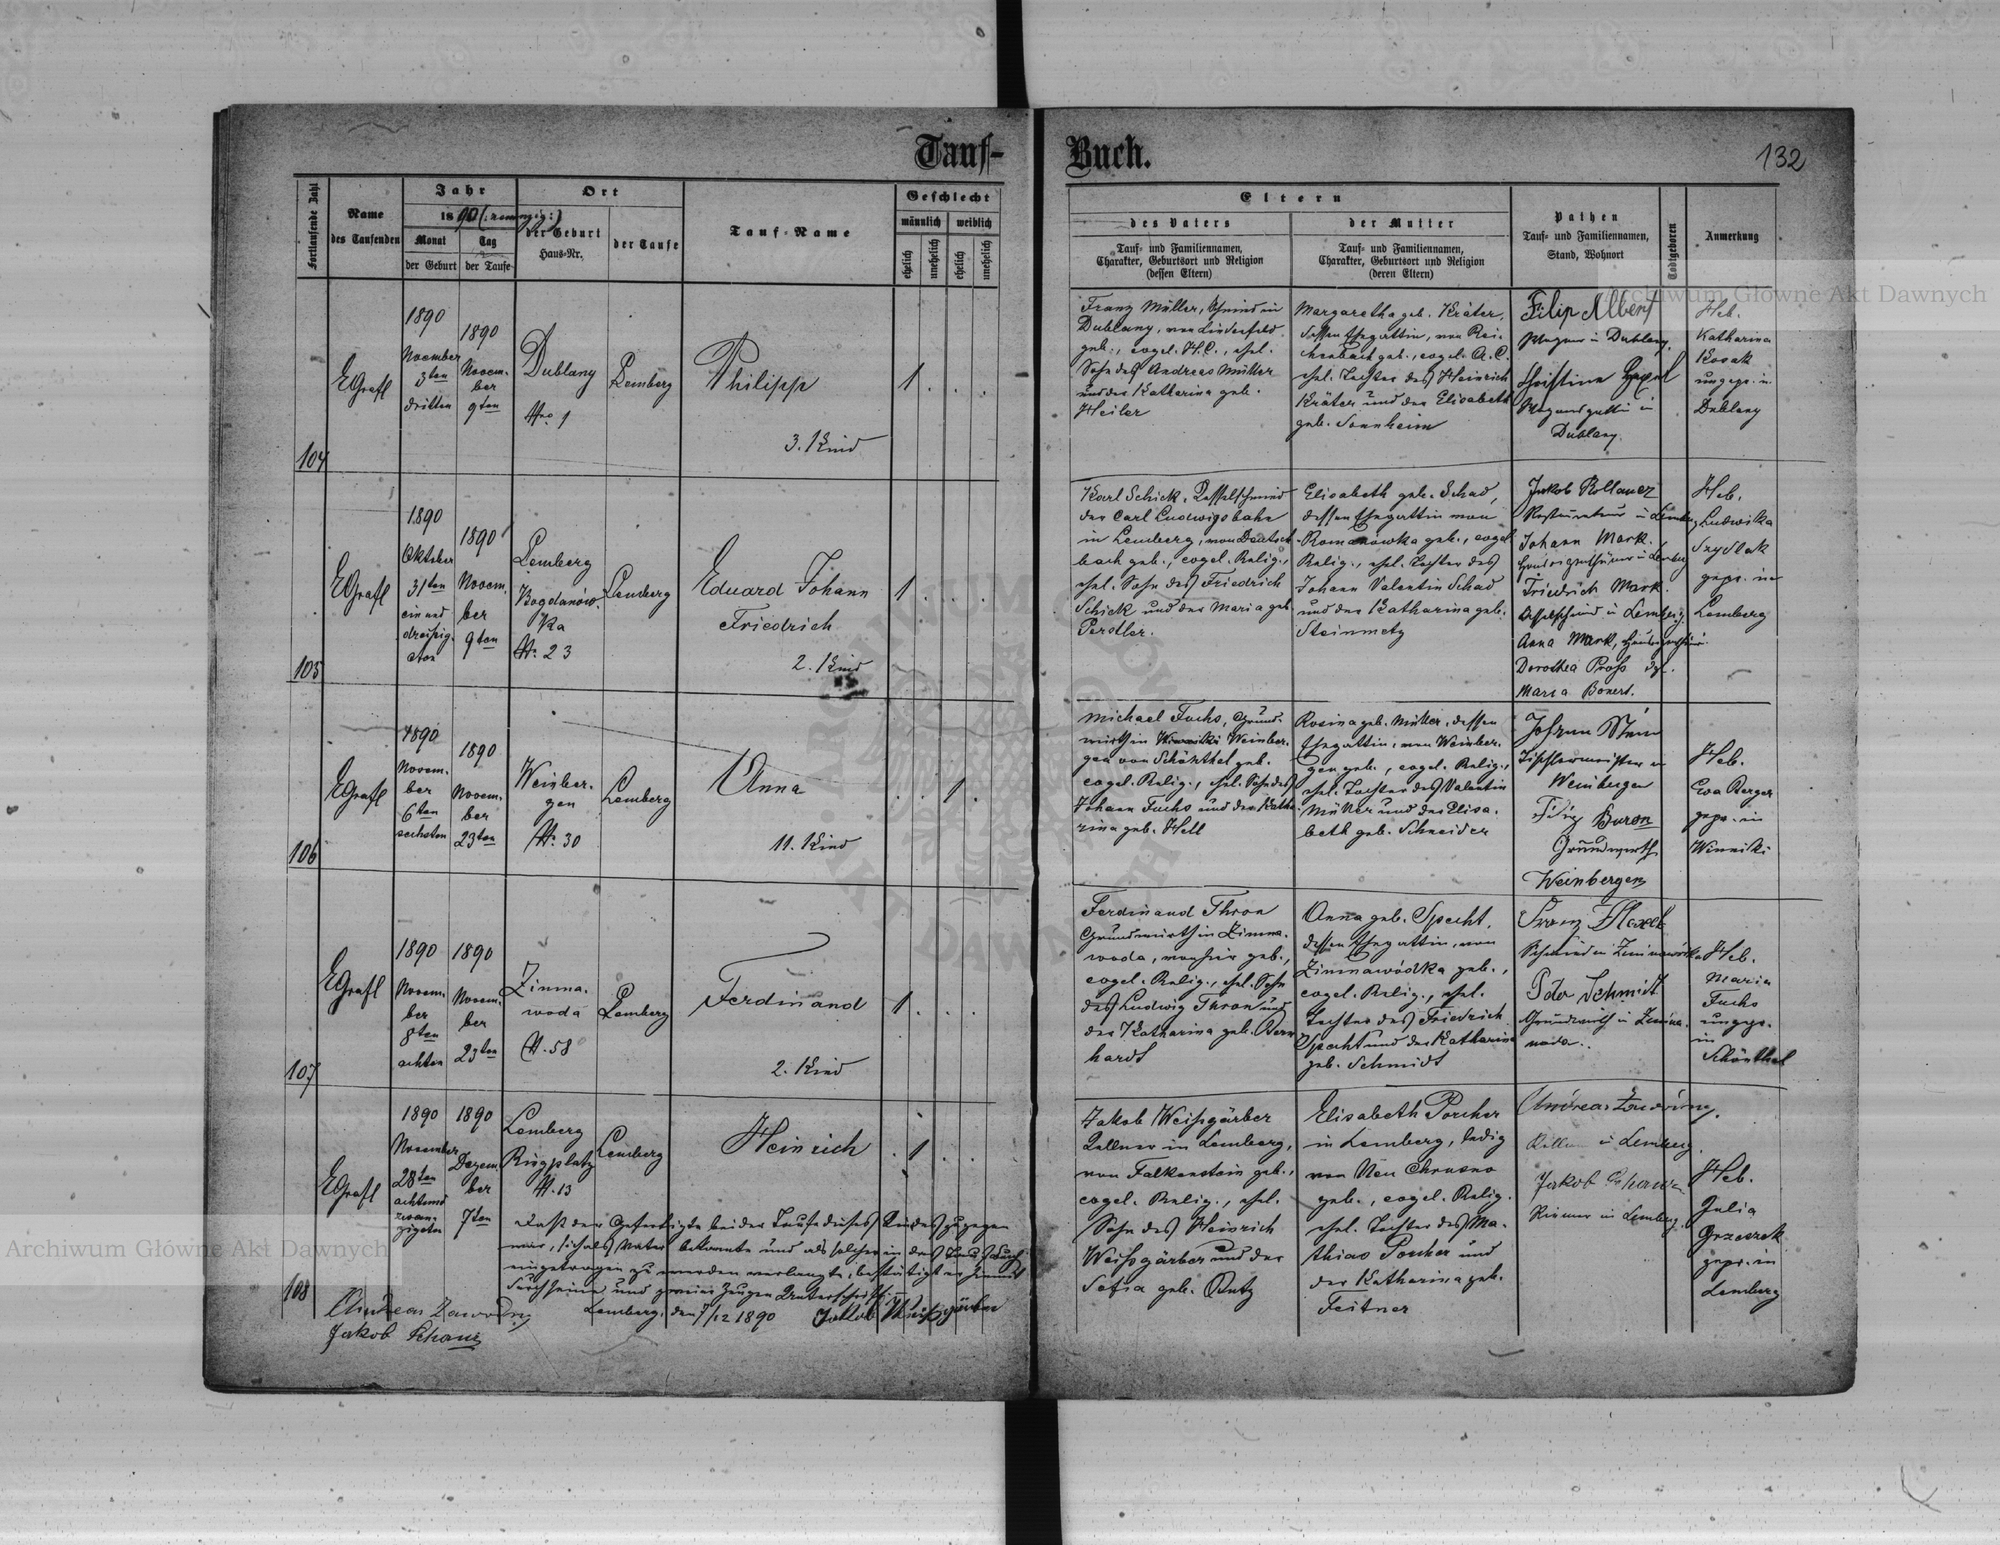 Tauf-
Buch.
132
Fortlaufende Zahl
Name
des Taufenden
Jahr
1890 (: neunzig :)
Monat
der Geburt
Tag
der Taufe
Ort
der Geburt
Haus-Nr.
der Taufe
Tauf-Name
Geschlecht
männlich
weiblich
ehelich
unehelich
ehelich
unehelich
Eltern
des Vaters
Tauf- und Familiennamen,
Charakter, Geburtsort und Religion
(dessen Eltern)
der Mutter
Tauf- und Familiennamen,
Charakter, Geburtsort und Religion
(deren Eltern)
Pathen
Tauf- und Familiennamen,
Stand, Wohnort
Todtgeboren
Anmerkung
104
EGrafl
1890
November
3ten
dritten
1890
Novem-
ber
9ten
Dublany
Nro 1
Lemberg
Philipp
3. Kind
1
Franz Müller, Schmied in
Dublany, von Lindenfeld
geb., evgel. H.C., ehel.
Sohn des Andreas Müller
und der Katharina geb.
Heiler
Margaretha geb. Kräter,
dessen Ehegattin, von Rei-
chenbach geb., evgel. A.C.
ehel. Tochter des Heinrich
Kräter und der Elisabeth
geb. Sonnheim
Filip Albert
Wagner in Dublany.
Christina
Dublany.
Heb.
Katharina
Kosak
ungepr. in
Dublany
105
EGrafl
1890
Oktober
31ten
ein und
dreißig-
sten
1890
Novem-
ber
9ten
Lemberg
Bogdanów-
ka
N. 23
Lemberg
Eduard Johann
Friedrich
2. Kind
1
Karl Schick, Kesselschmied
der Carl Ludwigsbahn
in Lemberg, von Deutsch-
bach geb., evgel. Relig.,
ehel. Sohn des Friedrich
Schick und der Maria geb.
Perstler.
Elisabeth geb. Schad,
dessen Ehegattin von
Romanówka geb., evgel.
Relig., ehel. Tochter des
Johann Valentin Schad
und der Katharina geb.
Steinmetz
Jakob Rollauer
Restaurateur in Lemberg
Johann Mark.
Hauseigenthümer in Lemberg
Friedrich Mark.
in Lemberg.
Anna Mark,
Dorothea Pross
Maria Bonert.
Heb.
Ludwika
Szydlak
gepr. in
Lemberg
106
EGrafl
1890
Novem-
ber
6ten
sechsten
1890
Novem-
ber
23ten
Weinber-
gen
N. 30
Lemberg
Anna
11. Kind
1
Michael Fuchs, Grund-
wirth in Winniki Weinber-
gen von Schönthal geb.
evgel. Relig., ehel. Sohn des
Johann Fuchs und der Katha-
rina geb. Hell
Rosina geb. Müller, dessen
Ehegattin, von Weinber-
gen geb., evgel. Relig.,
ehel. Tochter des Valentin
Müller und der Elisa-
beth geb. Schneider
Johann Stein
Tischlermeister in
Weinbergen
Filip Buron
Grundwirth
Weinbergen
Heb.
Eva Berger
gepr. in
Winniki
107
EGrafl
1890
Novem-
ber
8ten
achten
1890
Novem-
ber
23ten
Zimna-
woda
N. 58
Lemberg
Ferdinand
2. Kind
1
Ferdinand Thron
Grundwirth in Zimna-
woda, von hier geb.,
evgel. Relig., ehel. Sohn
des Ludwig Thron und
der Katharina geb. Bern-
hardt
Anna geb. Specht,
dessen Ehegattin, von
Zimnawódka geb.,
evgel. Relig., ehel.
Tochter des Friedrich
Specht und der Katharina
geb. Schmidt
Franz
Schmied in Zimnawódka
Peter Schmidt
Grundwirth in Zimna-
woda.
Heb.
Maria
Fuchs
ungepr.
in
Schönthal
108
EGrafl
1890
November
28ten
achtund
zwan-
zigsten
1890
Dezem-
ber
7ten
Lemberg
Ringplatz
N. 13
Lemberg
Heinrich
1
Daß der Gefertigte bei der Taufe dieses Kindes zugegen
war, sich als Vater bekannte und als solcher in das Taufbuch
eingetragen zu werden verlangte, bestätigt er hiemit
durch seine und zweier Zeugen Unterschrift.
Lemberg, den 7/12 1890 Jakob Weißgärber
Andreas Zawodny
Jakob Schanz
Jakob Weißgärber
Kellner in Lemberg,
von Falkenstein geb.,
evgel. Relig., ehel.
Sohn des Heinrich
Weißgärber und der
Sofia geb. Rutz
Elisabeth Porcher
in Lemberg, ledig
von Neu Chrusno
geb., evgel. Relig.
ehel. Tochter des Ma-
thias Porcher und
der Katharina geb.
Feitner
Andreas Zawodny,
Kellner in Lemberg.
Jakob Schanz
Riemer in Lemberg.
Heb.
Julia
Grzeszek
gepr. in
Lemberg
Archiwum Główne Akt Dawnych
Archiwum Główne Akt Dawnych